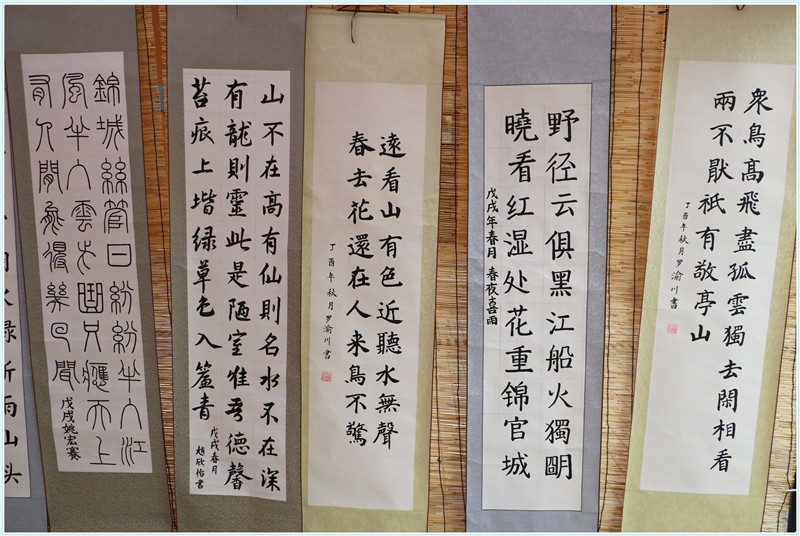 衆鳥髙飛盡孤雲獨去閑相看
兩不厭祇有敬亭山
丁酉年秋月罗渝川書
野径云俱黑江船火獨朙
曉看红湿处花重錦官城
戊戌年春月 春夜喜雨
遠看山有色近聽水無聲
春去花還在人来鳥不驚
丁酉年秋月罗渝川書
山不在髙有仙則名水不在深
有龍則靈此是陋室惟吾德馨
苔痕上堦绿草色入簾青
戊戌春月
趙欣怡書
錦城絲管日紛紛半入江
風半入雲此曲只應天上
有人間能得幾回聞
戊戌姚宏赛